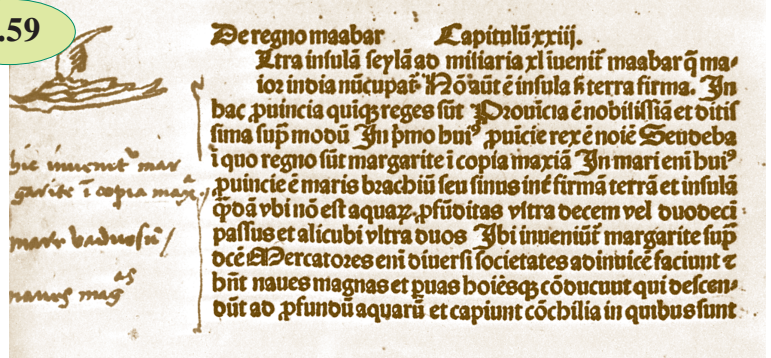 .59
De regno maabar Capitulũ xxiii.
Ltra insulã seylã ad miliaria xl iuenit̃ maabar q̃ ma⸗
ior india nũcupat̃ Nõ aũt ẽ insula sꝫ terra firma. In
hac ꝓuincia quiqꝫ reges sũt Prouĩcia ẽ nobilissĩa et ditis
sima sup̃ modũ In p̃mo huiꝰ ꝓuĩcie rex ẽ noĩe Sendeba
ĩ quo regno sũt margarite ĩ copia maxĩa In mari enĩ huiꝰ
ꝓuincie ẽ maris brachiũ seu sinus int̃ firmã terrã et insulã
q̃dã vbi nõ est aquaꝝ ꝓfũditas vltra decem vel duodecĩ
passus et alicubi vltra duos Ibi inueniũt̃ margarite sup̃
dcẽ Mercatores enĩ diuersi societates adinuicẽ faciunt ⁊
hñt naues magnas et ꝑuas hoĩesqꝫ cõducunt qui descen⸗
dũt ad ꝓfundũ aquarũ et capiunt cõchilia in quibus sunt
hic inuenit̃ mar
garite ĩ copia max̃
mare vadosũ /
naues mag^as